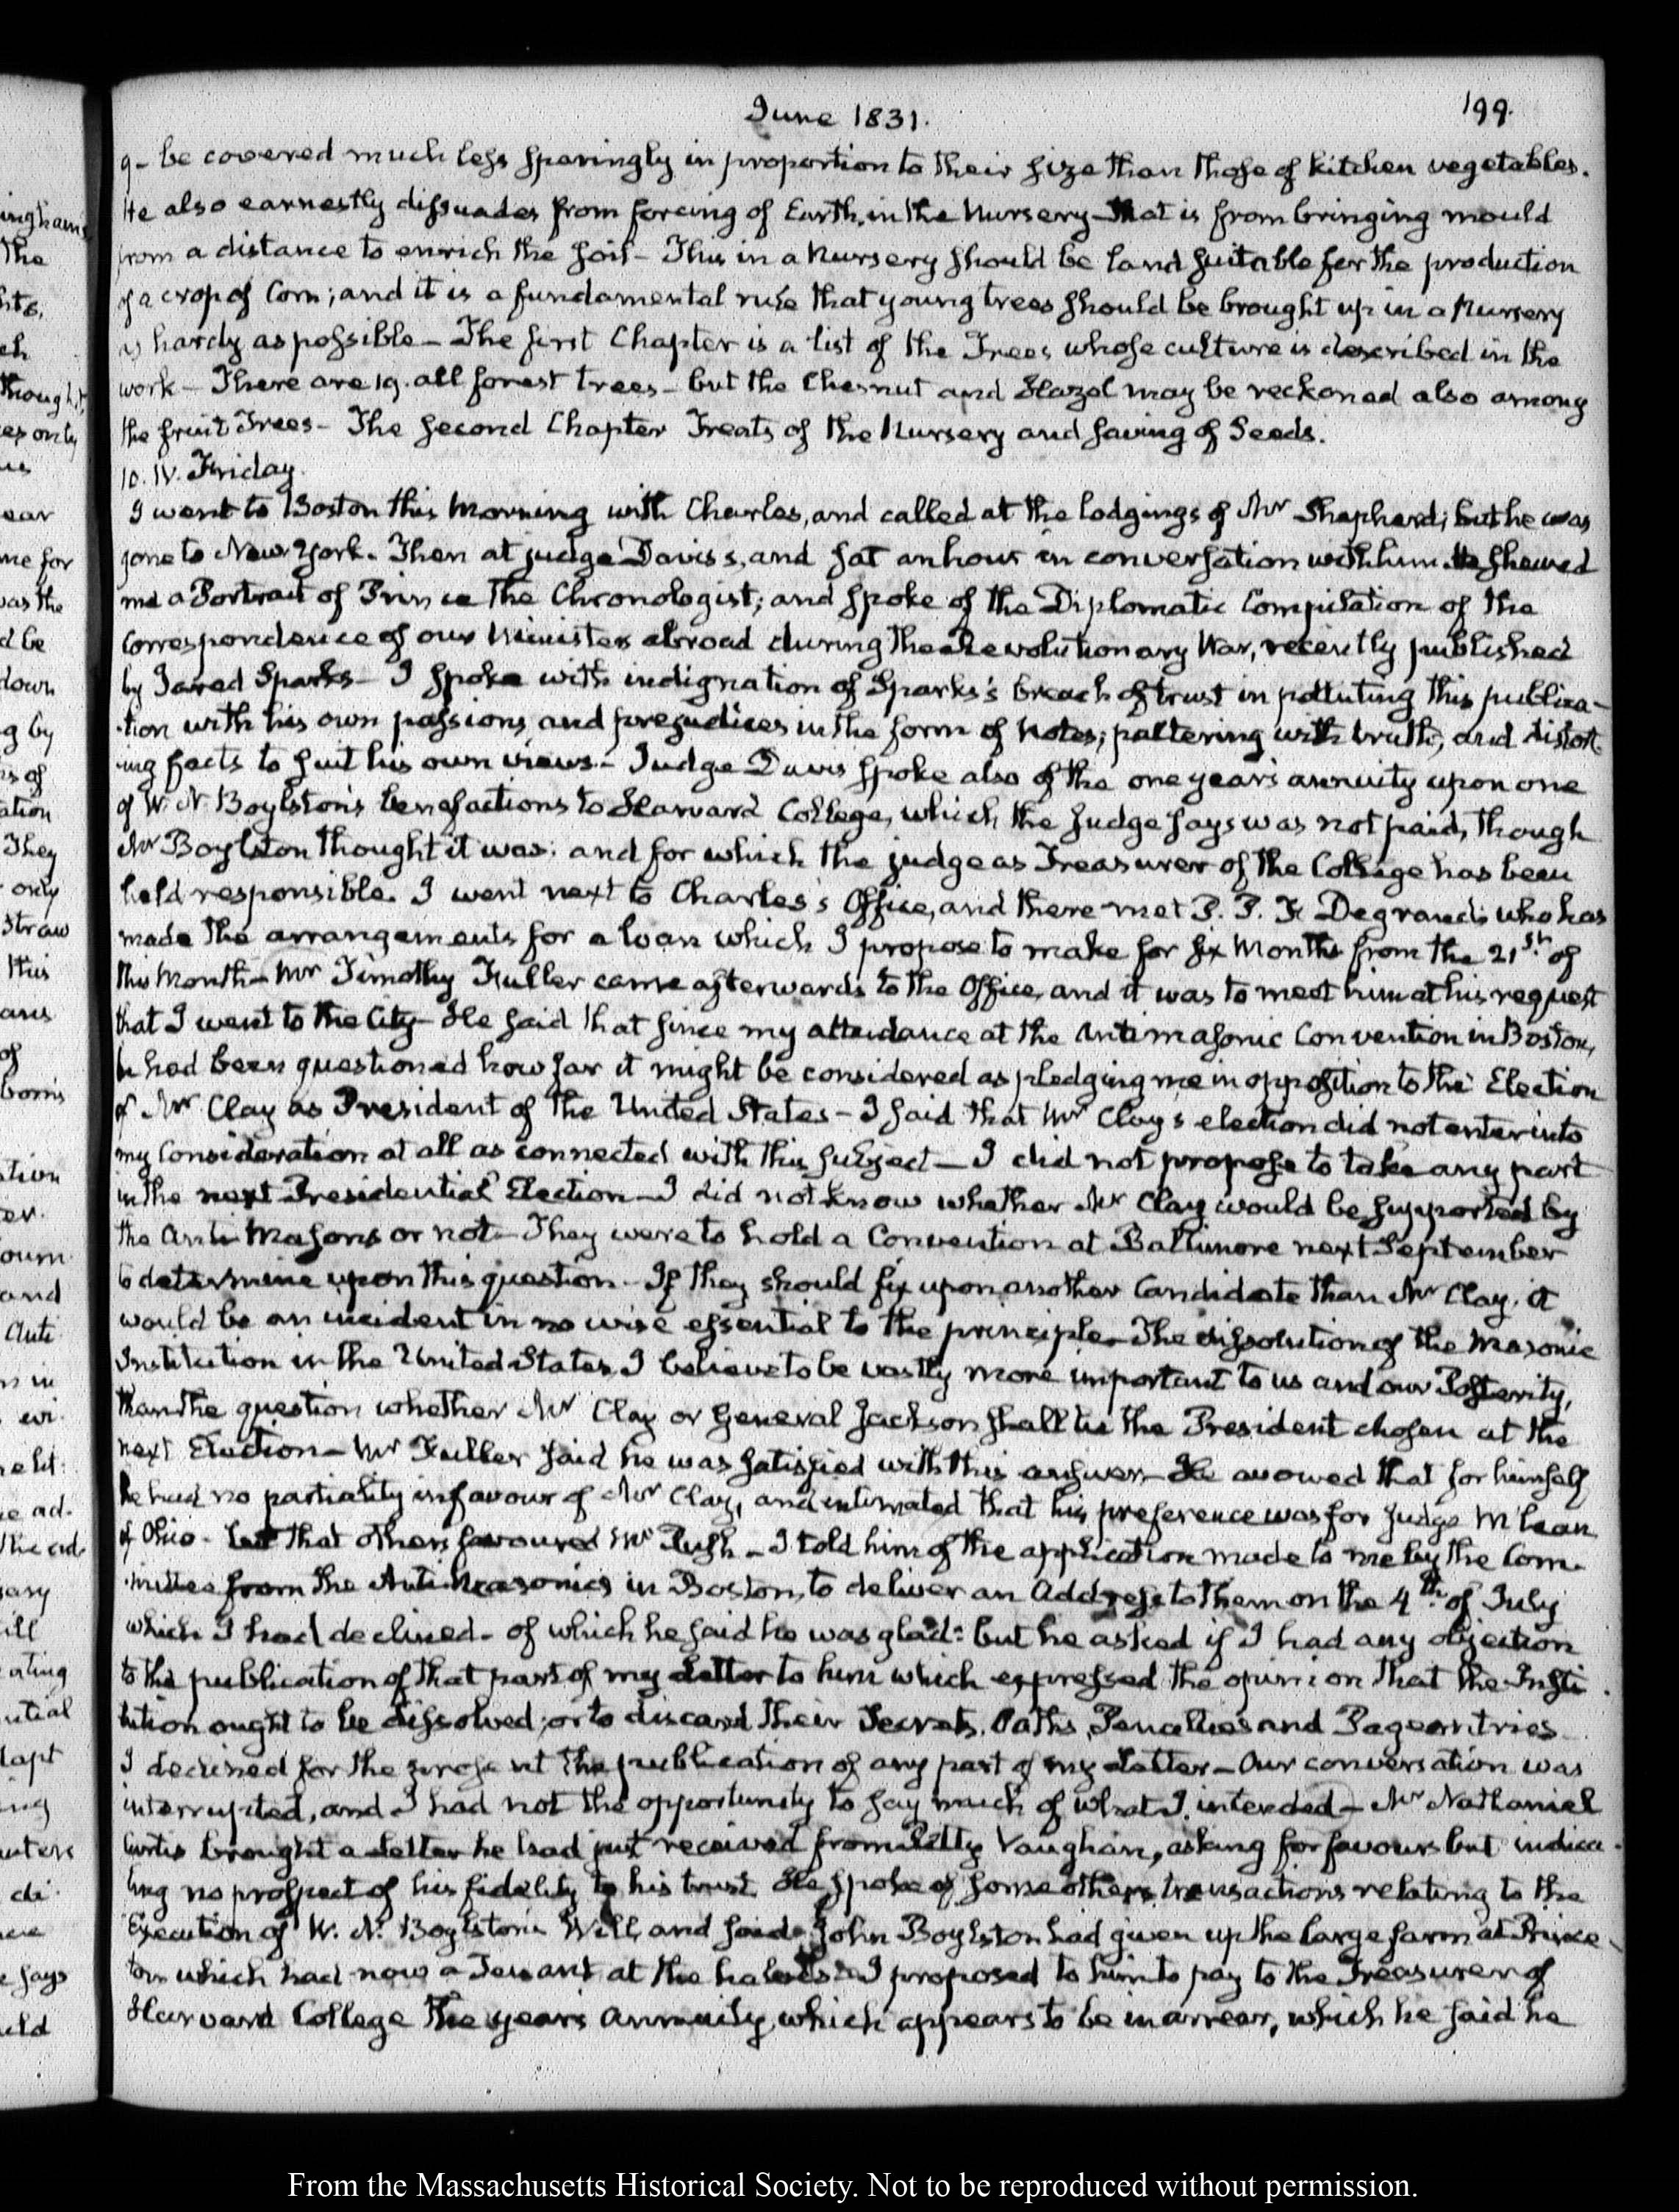 June 1831.
199.
9- be covered much less sparingly in proportion to their size than those of kitchen vegetables.
He also earnestly dissuades from forcing of Earth, in the Nursery - that is from bringing mould
from a distance to enrich the soil - This in a Nursery should be land suitable for the production
of a crop of Corn; and it is a fundamental rule that young trees should be brought up in a Nursery
as hardy as possible - The first Chapter is a list of the Trees whose culture is described in the
work - There are 19. all forest trees - but the Chesnut and Hazel may be reckoned also among
the fruit Trees - The second Chapter Treats of the Nursery and saving of Seeds.
10. IV. Friday.
I went to Boston this Morning with Charles, and called at the lodgings of Mr Shepherd; but he was
gone to New-York. Then at judge Davis's, and sat an hour in conversation with him. He shewed
me a Portrait of Prince the Chronologist; and spoke of the Diplomatic Compilation of the
Correspondence of our Ministers abroad during the Revolutionary War, recently published
by Jared Sparks - I spoke with indignation of Sparks's breach of trust in polluting this publica-
-tion with his own passions, and prejudices in the form of Notes; paltering with truth, and distort-
-ing facts to suit his own views - Judge Davis spoke also of the one year's annuity upon one
of W. N. Boylston's benefactions to Harvard College, which the Judge says was not paid, though
Mr Boylston thought it was; and for which the judge as Treasurer of the College has been
held responsible. I went next to Charles's Office, and there met P. P. F. Degrand; who has
made the arrangements for a loan which I propose to make for six Months from the 21st of
this Month - Mr Timothy Fuller came afterwards to the Office, and it was to meet him at his request
that I went to the City - He said that since my attendance at the Antimasonic Convention in Boston,
he had been questioned how far it might be considered as pledging me in opposition to the Election
of Mr Clay as President of the United States - I said that Mr Clay's election did not enter into
my Consideration at all as connected with this subject - I did not propose to take any part
in the next Presidential Election - I did not know whether Mr Clay would be supported by
the Anti-Masons or not - They were to hold a Convention at Baltimore next September
to determine upon this question - If they should fix upon another Candidate than Mr Clay, it
would be an incident in no wise essential to the principle - The dissolution of the Masonic
Institution in the United States, I believe to be vastly more important to us and our Posterity,
than the question whether Mr Clay or General Jackson shall be the President chosen at the
next Election - Mr Fuller said he was satisfied with this answer - He avowed that for himself
he had no partiality in favour of Mr Clay, and intimated that his preference was for Judge McLean
of Ohio - but that others favoured Mr Rush - I told him of the application made to me by the Com-
-mittee from the Anti-Masonics in Boston, to deliver an Address to them on the 4th of July
which I had declined - of which he said he was glad: but he asked if I had any objection
to the publication of that part of my Letter to him which expressed the opinion that the Insti-
tution ought to be dissolved; or to discard their Secrets, Oaths, Penalties and Pageantries
I declined for the present the publication of any part of my Letter - Our conversation was
interrupted, and I had not the opportunity to say much of what I intended - Mr Nathaniel
Curtis brought a Letter he had just received from Petty Vaughan, asking for favours but indica-
ting no prospect of his fidelity to his trust. He spoke of some other transactions relating to the
Execution of W. N. Boylston's Will, and said John Boylston had given up the large farm at Prince-
ton which had now a Tenant at the halves - I proposed to him to pay to the Treasurer of
Harvard College the year's annuity, which appears to be in arrear, which he said he
From the Massachusetts Historical Society. Not to be reproduced without permission.